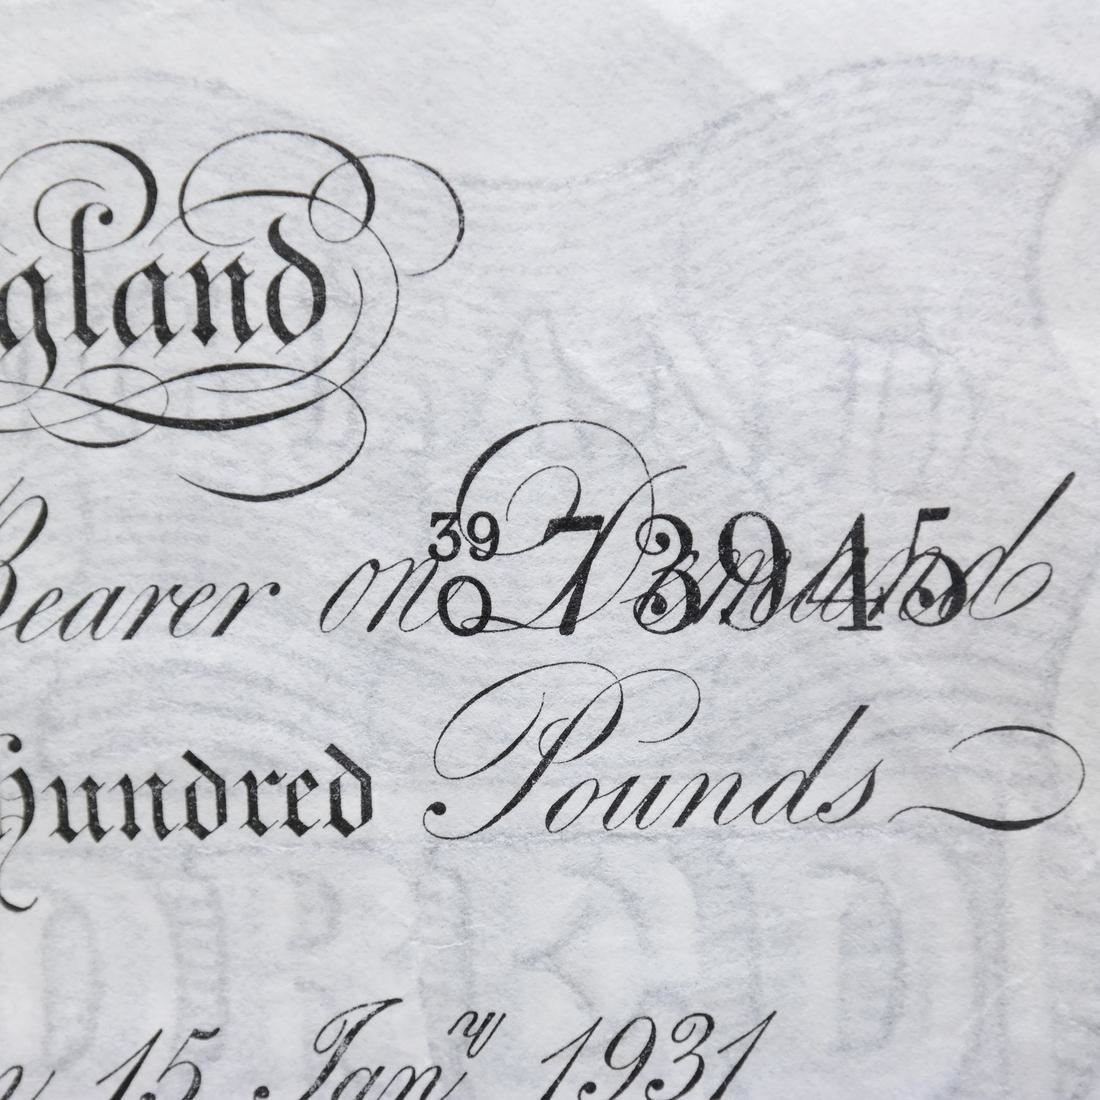 gland
Bearer on Demand
39
0 73945
Hundred Pounds
15 Janry 1931